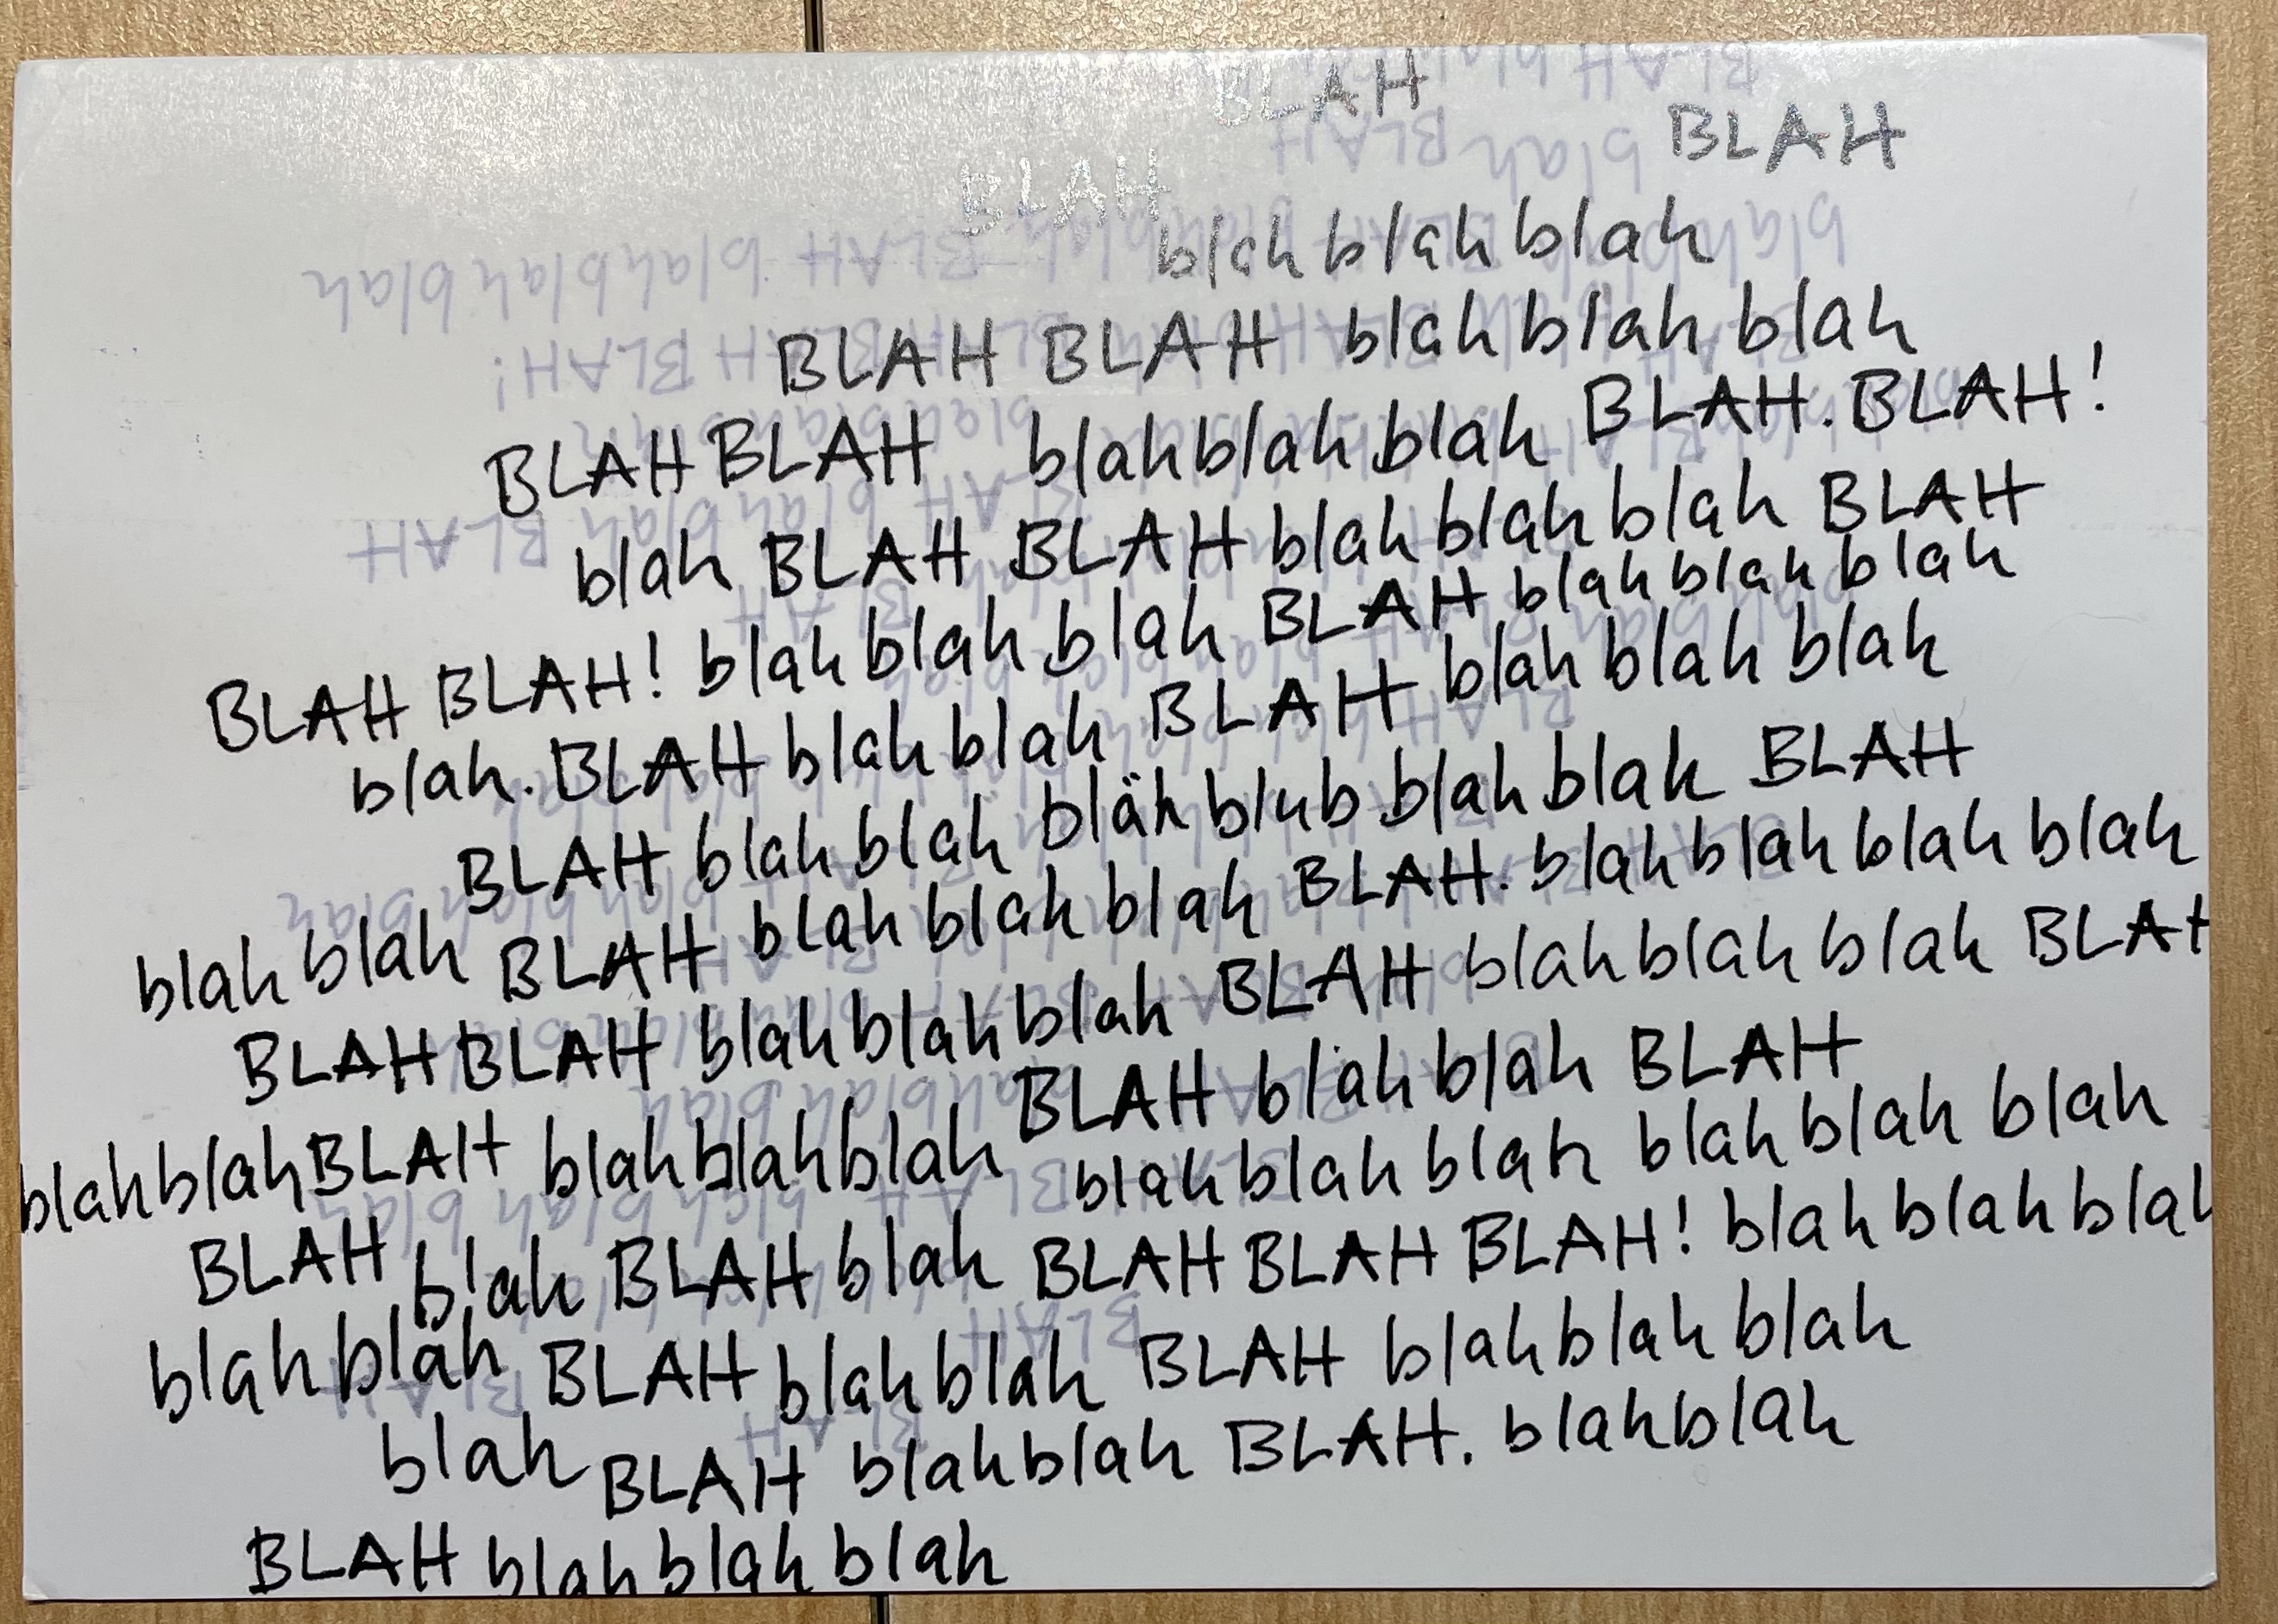 BLAH
BLAH
BLAH
blah blah blah
BLAH BLAH blah blah blah
BLAH BLAH blah blah blah BLAH. BLAH!
blah BLAH BLAH blah blah blah BLAH
BLAH BLAH! blah blah blah BLAH blah blah blah
blah. BLAH blah blah BLAH blah blah blah
BLAH blah blah bläh blub blah blah BLAH
blah blah BLAH blah blah blah BLAH. blah blah blah blah
BLAH BLAH blah blah blah BLAH blah blah blah BLAH
blah blah BLAH blah blah blah BLAH blah blah BLAH
blah blah blah blah blah blah
BLAH blah BLAH blah BLAH BLAH BLAH! blah blah blah
blah blah BLAH blah blah BLAH blah blah blah
blah BLAH blah blah BLAH. blah blah
BLAH blah blah blah